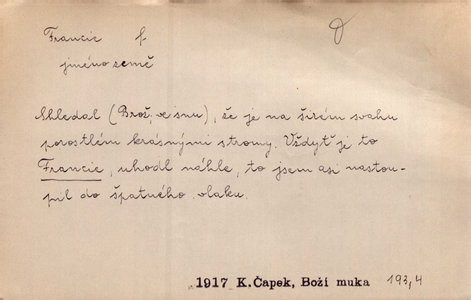 Francie f
jméno země
Shledal (Brož, ve snu), že je na širém svahu
porostlém krásnými stromy. Vždyť je to
Francie, uhodl náhle, to jsem asi nastou-
pil do špatného vlaku.
1917 K.Čapek, Boží muka 193,4